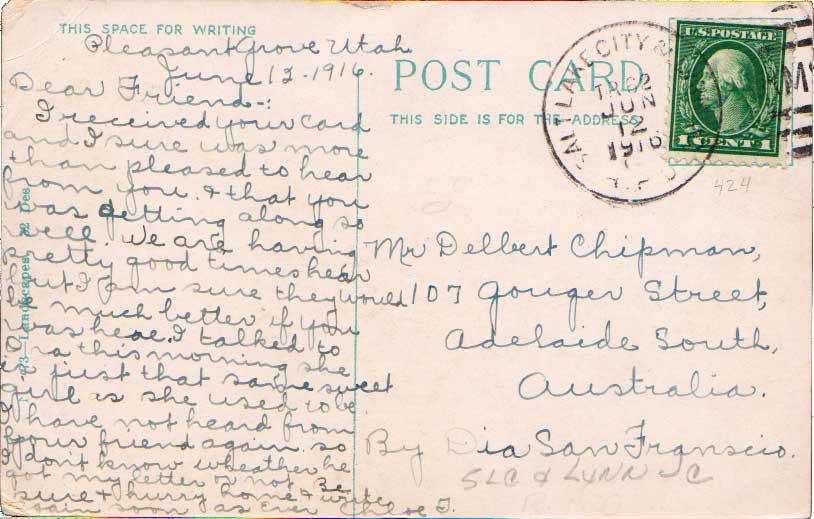 THIS SPACE FOR WRITING
Pleasant Grove Utah
June 12 - 1916.
Dear Friend -:
I received your card
and I sure was more
than pleased to hear
from you. & that you
was getting along so
well. We are having
pretty good times hear
but I am sure they would
be much better if you
was hear. I talked to
this morning she
is just that same sweet
girl as she used to be
I have not heard from
your friend again. so
I don't know wheather he
got my letter or not. Be
sure & hurry home & write
again soon as ever Chloe T.
F - 93 - Landscapes, 32 Des
POST CARD
THIS SIDE IS FOR THE ADDRESS
SALT LAKE CITY &
JUN
12
1916
R.P.O.
U.S. POSTAGE
1 CENT 1
424
Mr Delbert Chipman,
107 Gouger Street,
Adelaide South,
Australia.
By Via San Franscio.
SLC & LYNN JC